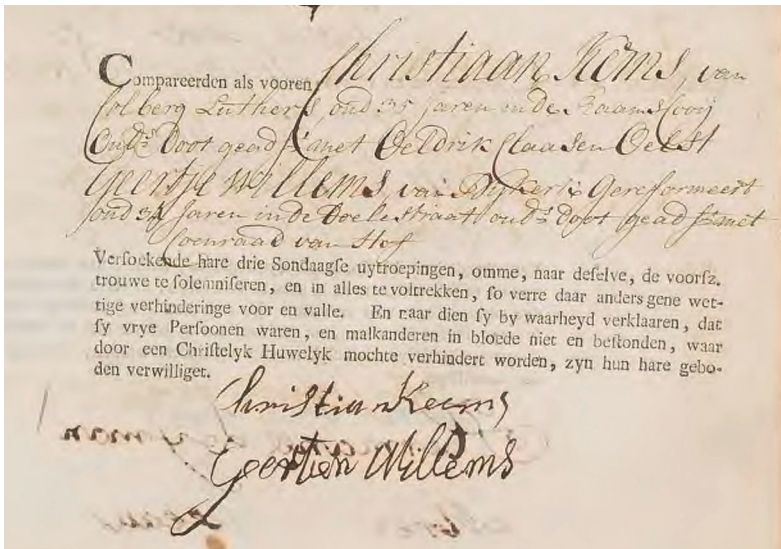 Compareerden als vooren Christiaan Kems, van
Colberg Luthers oud 35 Jaren in de
Oud:s Doot geads: met Oeldrik Claasen Oelst
Geertje Willems, van Nykerk Gereformeert
oud 34 Jaren in de Doelestraat oud:s doot geads: met
Coenraad van Hof
Versoekende hare drie Sondaagse uytroepingen, omme, naar deselve, de voorsz.
trouwe te solemniseren, en in alles te voltrekken, so verre daar anders gene wet-
tige verhinderinge voor en valle. En naar dien sy by waarheyd verklaaren, dat
sy vrye Persoonen waren, en malkanderen in bloede niet en bestonden, waar
door een Christelyk Huwelyk mochte verhindert worden, zyn hun hare gebo-
den verwilliget.
Christian Keems
Gertien Willems